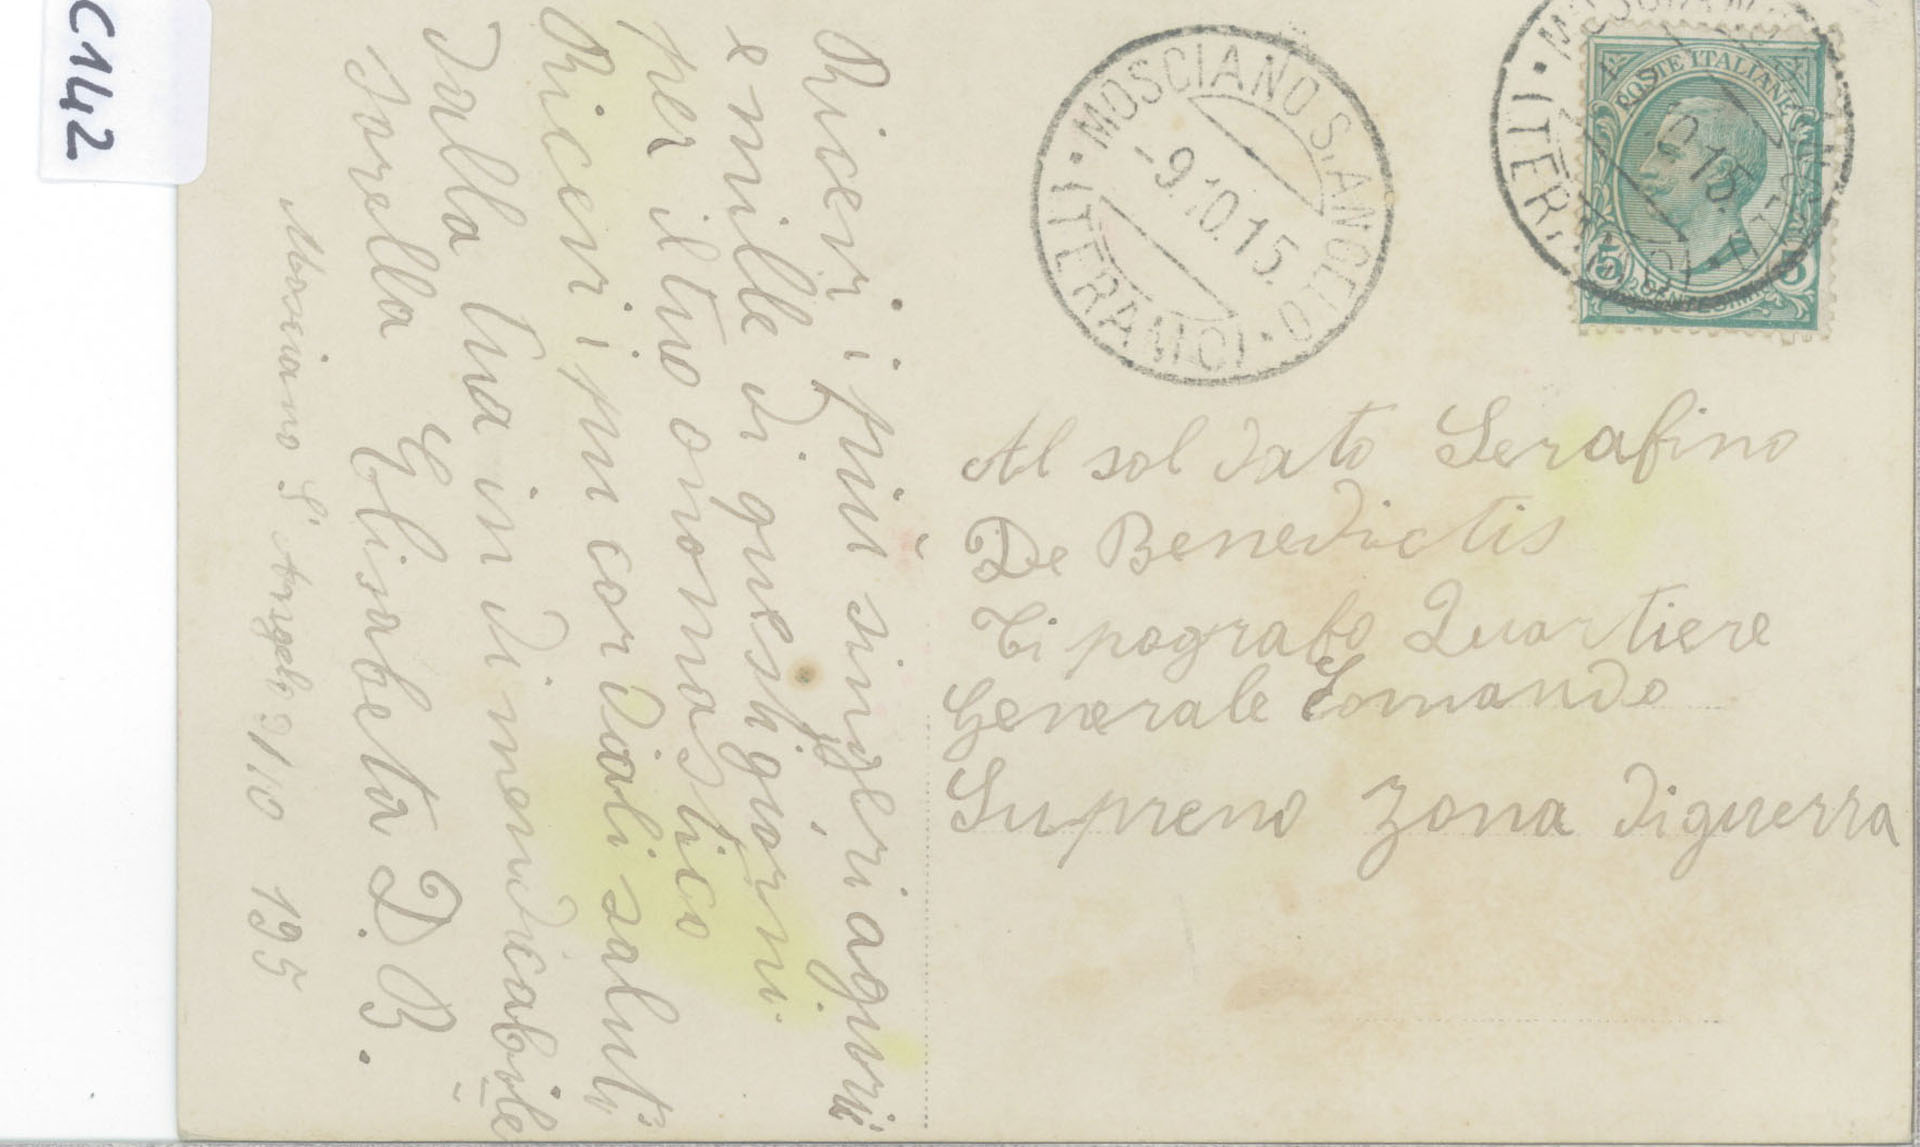 C142
Ricevi i più sinceri auguri
e mille di questi giorni.
per il tuo onomastico
Ricevi i più cordiali saluti
dalla tua indimendicabile
sorella Elisabeta D. B.
Mosciano S. Angelo 9/10 195
MOSCIANO S. ANGELO (TERAMO)
-9.10.15.
POSTE ITALIANE
5 CENTESIMI 5
Al soldato Serafino
De Benedictis
Tipografo Quartiere
Generale Comando
Supremo Zona di guerra